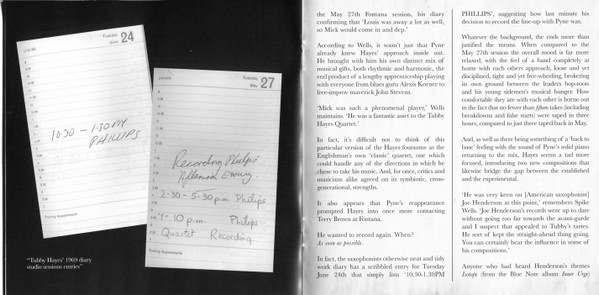 Tuesday
24
10.30 - 1.30 PM
PHILLIPS
Evening Appointments
Tuesday
May
27
Recording Philips
Afternoon Evening
2-30 - 5-30 p.m. Philips
7 - 10 p.m. Philips
Quartet Recording
Evening Appointments
"Tubby Hayes' 1969 diary
studio sessions entries"
the May 27th Fontana session, his diary
confirming that 'Louis was away a lot as well,
so Mick would come in and dep.'
According to Wells, it wasn't just that Pyne
already knew Hayes' approach inside out.
He brought with him his own distinct mix of
musical gifts, both rhythmic and harmonic, the
end product of a lengthy apprenticeship playing
with everyone from blues guru Alexis Korner to
free-improv maverick John Stevens.
'Mick was such a phenomenal player,' Wells
maintains. 'He was a fantastic asset to the Tubby
Hayes Quartet.'
In fact, it's difficult not to think of this
particular version of the Hayes foursome as the
Englishman's own 'classic' quartet, one which
could handle any of the directions in which he
chose to take his music. And, for once, critics and
musicians alike agreed on its symbiotic, cross-
generational, strengths.
It also appears that Pyne's reappearance
prompted Hayes into once more contacting
Terry Brown at Fontana.
He wanted to record again. When?
As soon as possible.
In fact, the saxophonists otherwise neat and tidy
work diary has a scribbled entry for Tuesday
June 24th that simply lists '10.30-1.30PM
PHILLIPS', suggesting how last minute his
decision to record the line-up with Pyne was.
Whatever the background, the ends more than
justified the means. When compared to the
May 27th session the overall mood is far more
relaxed, with the feel of a band completely at
home with each others approach, loose and yet
disciplined, tight and yet free-wheeling, brokering
its own ground between the leaders bop-roots
and his young sidemen's musical hunger. How
comfortable they are with each other is borne out
in the fact that no fewer than fifteen takes (including
breakdowns and false starts) were taped in three
hours, compared to just three taped back in May.
And, as well as there being something of a 'back to
base' feeling with the sound of Pyne's solid piano
returning to the mix, Hayes seems a tad more
focused, introducing two new compositions that
likewise bridge the gap between the established
and the experimental.
'He was very keen on [American saxophonist]
Joe Henderson at this point,' remembers Spike
Wells. 'Joe Henderson's records were up to date
without going too far towards the avant-garde
and I suspect that appealed to Tubby's tastes.
He sort of kept the straight-ahead thing going.
You can certainly hear the influence in some of
his compositions.'
Anyone who had heard Henderson's themes
Isotope (from the Blue Note album Inner Urge)